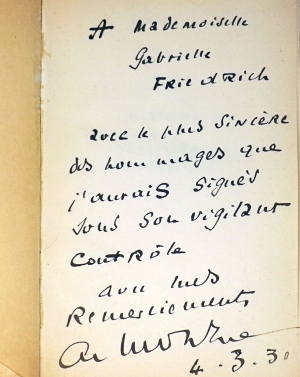 A Mademoiselle
Gabrielle
Friedrich
avec le plus sincère
des hommages que
j'aurais signés
sous son vigilant
contrôle
avec mes
Remerciements
4.3.30